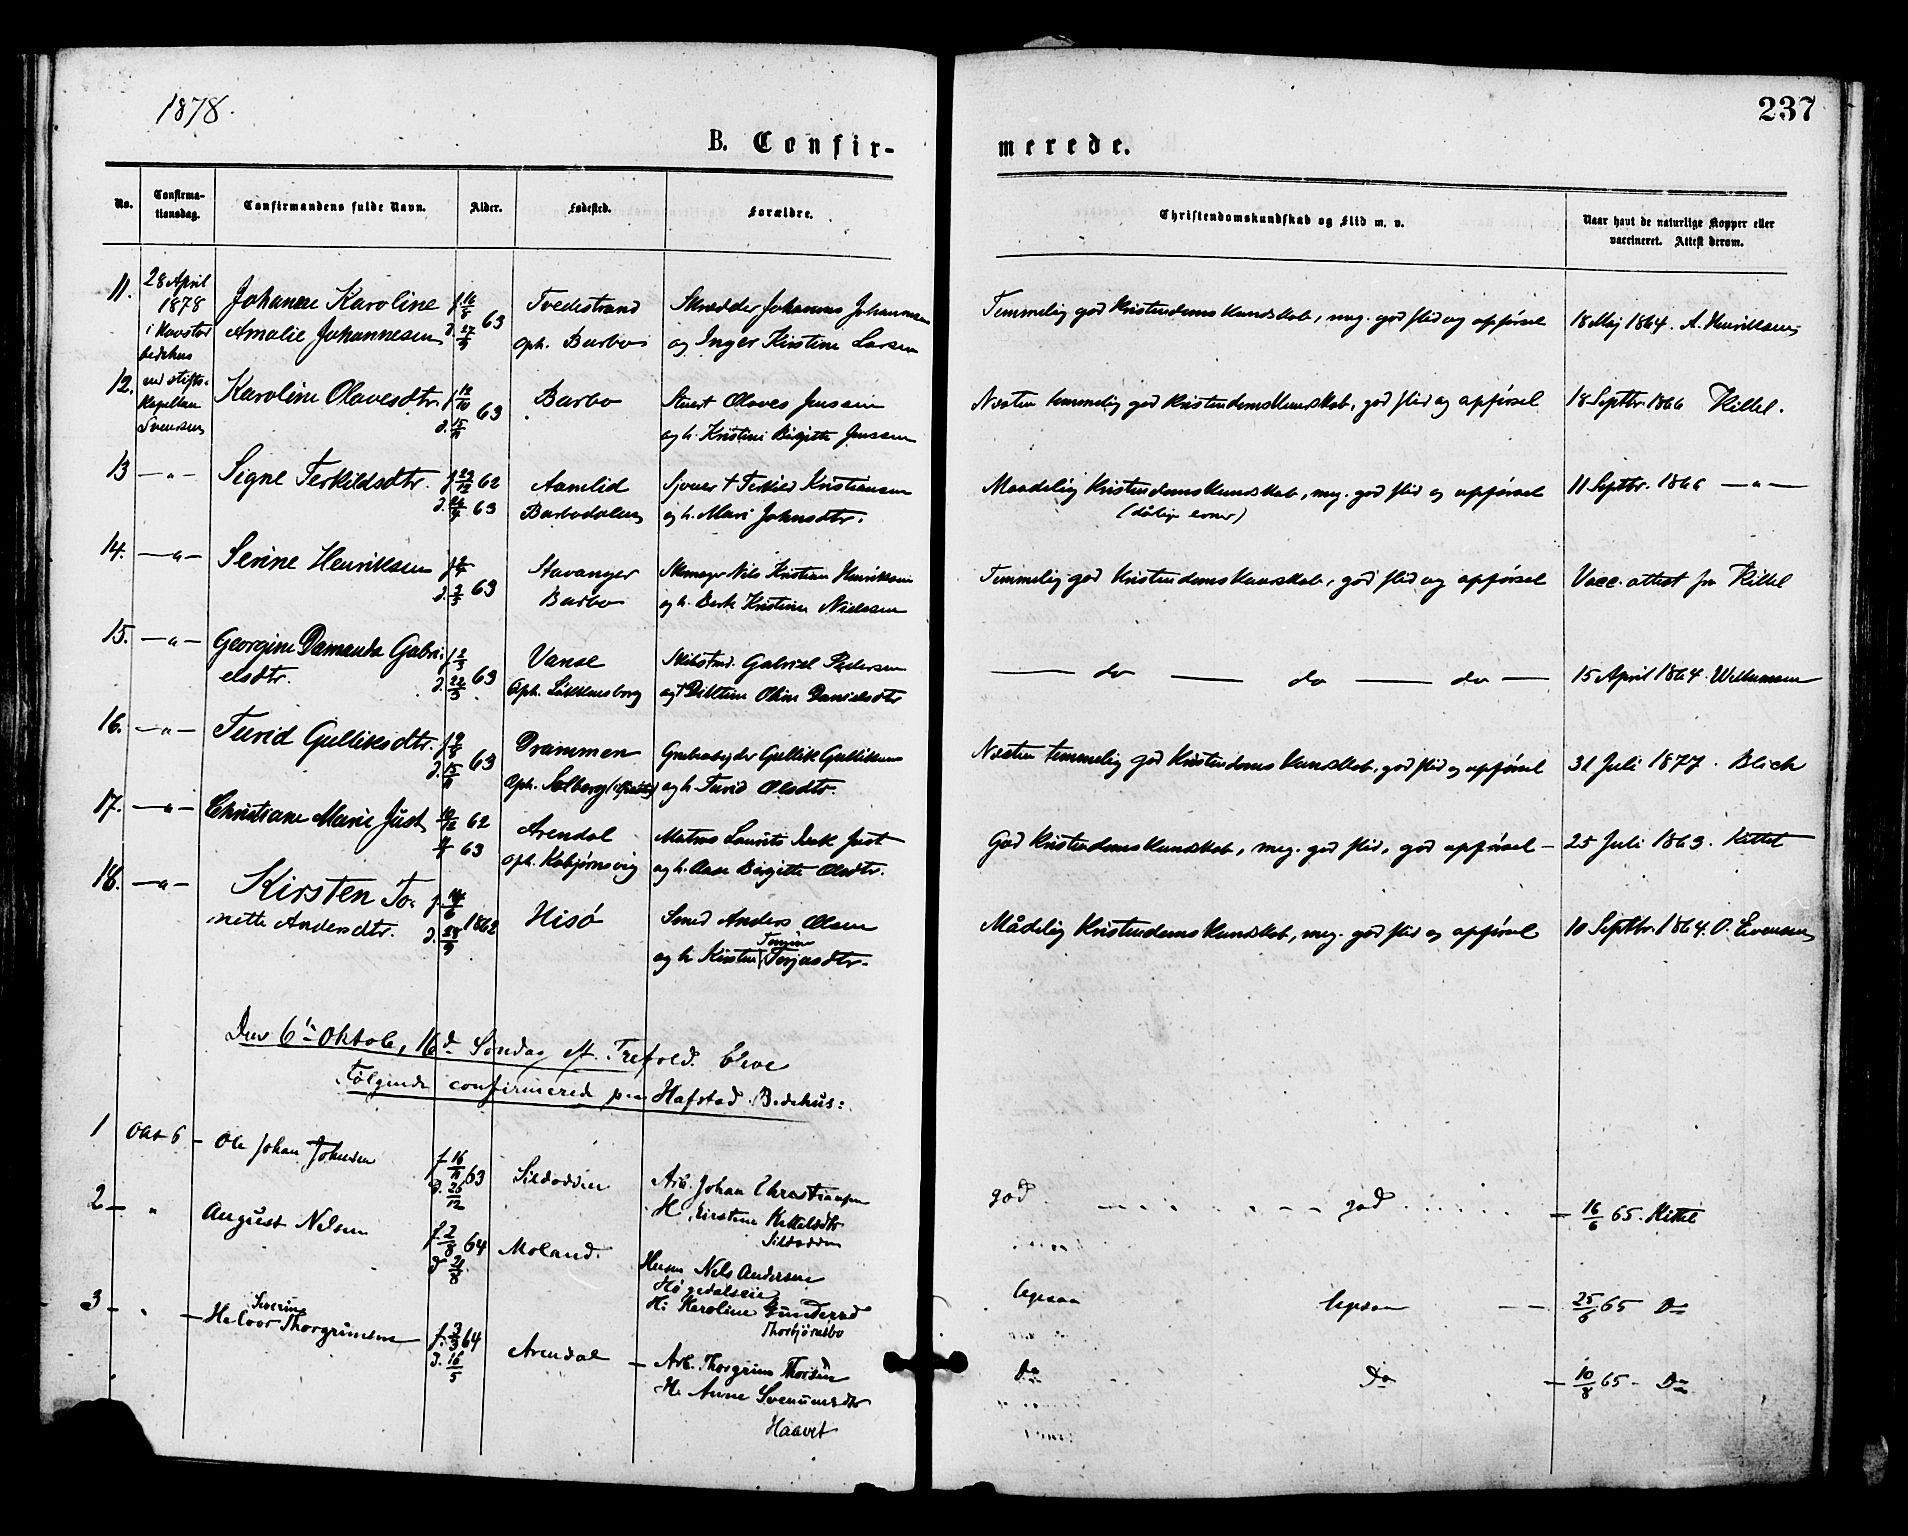 1878.
237
B. Confir-
merede.
No.
Confirma-
tionsdag.
Confirmandens fulde Navn.
Alder.
Fødested.
Forældre.
Christendomskundskab og Flid m. v.
Naar havt de naturlige Kopper eller
vaccineret. Attest derom.
11.
28 April
1878
i Havstad
bedehus
Johanne Karoline
Amalie Johannesen
63
Tvedestrand
Oph. Barbo
Skrædder Johannes Johannesen
og Inger Kirstine Larsen
Temmelig god Kristendomskundskab, meg. god flid og opførsel
18 Maj 1864. A. Henriksen
12.
ved stifts-
kapellan
Svensen
Karoline Olavesdtr.
f. 18/10
d. 15/11 63
Barbo
Stuert Olaves Jensen
og h. Kristine Birgitte Jenssen
Næsten temmelig god Kristendomskundskab, god flid og opførsel
18 Septbr. 1866 Kittel.
13 —„—
Signe Terkildsdtr.
f. 23/12 62
63
Aamlid
Barbodalen
† Terkild Kristiansen
og h. Mari Johnsdtr.
Maadelig Kristendomskundskab, meg. god flid og opførsel
(dårlige evner)
11 Septbr. 1866 —„—
14. —„—
Serine Henriksen
63
Stavanger
Barbo
Skomager Nils Kristian Henriksen
og h. Berte Kristine Nielsen
Temmelig god Kristendomskundskab, god flid og opførsel
Vacc. attest fra Kittel
15. —„—
Georgine Damanda Gabri-
elsdtr.
f. 2/3
d. 22/3 63
Vanse
Oph. Løkkensborg
Skibstmd. Gabriel Pedersen
og † Olline Danielsdtr
— do — do — do —
15 April 1864. Wettumsen
16. —„—
Turid Gulliksdtr.
63
Drammen
Oph. Solberg
Grubearbejder Gullik Gulliksen
og h. Turid Olsdtr.
Næsten temmelig god Kristendomskundskab, god flid og opførsel
31 Juli 1877. Blich
17. —„—
Christiane Marie Just
62
63
Arendal
Oph. Kolbjørnsvig
Matros Laurits Just
og h. Aase Birgitte Olsdtr.
God Kristendomskundskab, meg. god flid, god opførsel —
25 Juli 1863. Kittel
18. —„—
Kirsten To-
nette Andersdtr.
f. 14/6
d. 28/9 1862
Hisö
Smed Anders Olsen
og h. Kirsten Tomine Terjesdtr.
Mådelig Kristendomskundskab, meg. god flid og opførsel
10 Septbr. 1864. O. Evensen
Den 6te Oktob., 16de Søndag eft. Trefold. bleve
Følgende confirmerede paa Hafstad Bedehus:
1 Okt 6 —
Ole Johan Johnsen
f. 16/11
d. 26/12 63
Sildodden
Arb. Johan Christiansen
H. Kirstine Kittelsdtr
Sildodden
god
god
— 16/6 65. Kittel
2 — „
August Nelsen
f. 2/8
d. 21/8 64
Moland.
Husm Nels Andersen
Høgedalseie
H: Karoline Gundersd
Thorbjørnsbo
Ugesaa
Ugesaa — —
25/6 65 Do
3 — „ —
Halvor Severin Thorgrimsen
f. 3/3
d. 16/5 64
Arendal —
Arb. Thorgrim Thorsen
H. Anne Svenumsdtr
Haavet
Do
Do
— 10/8 65 — Do